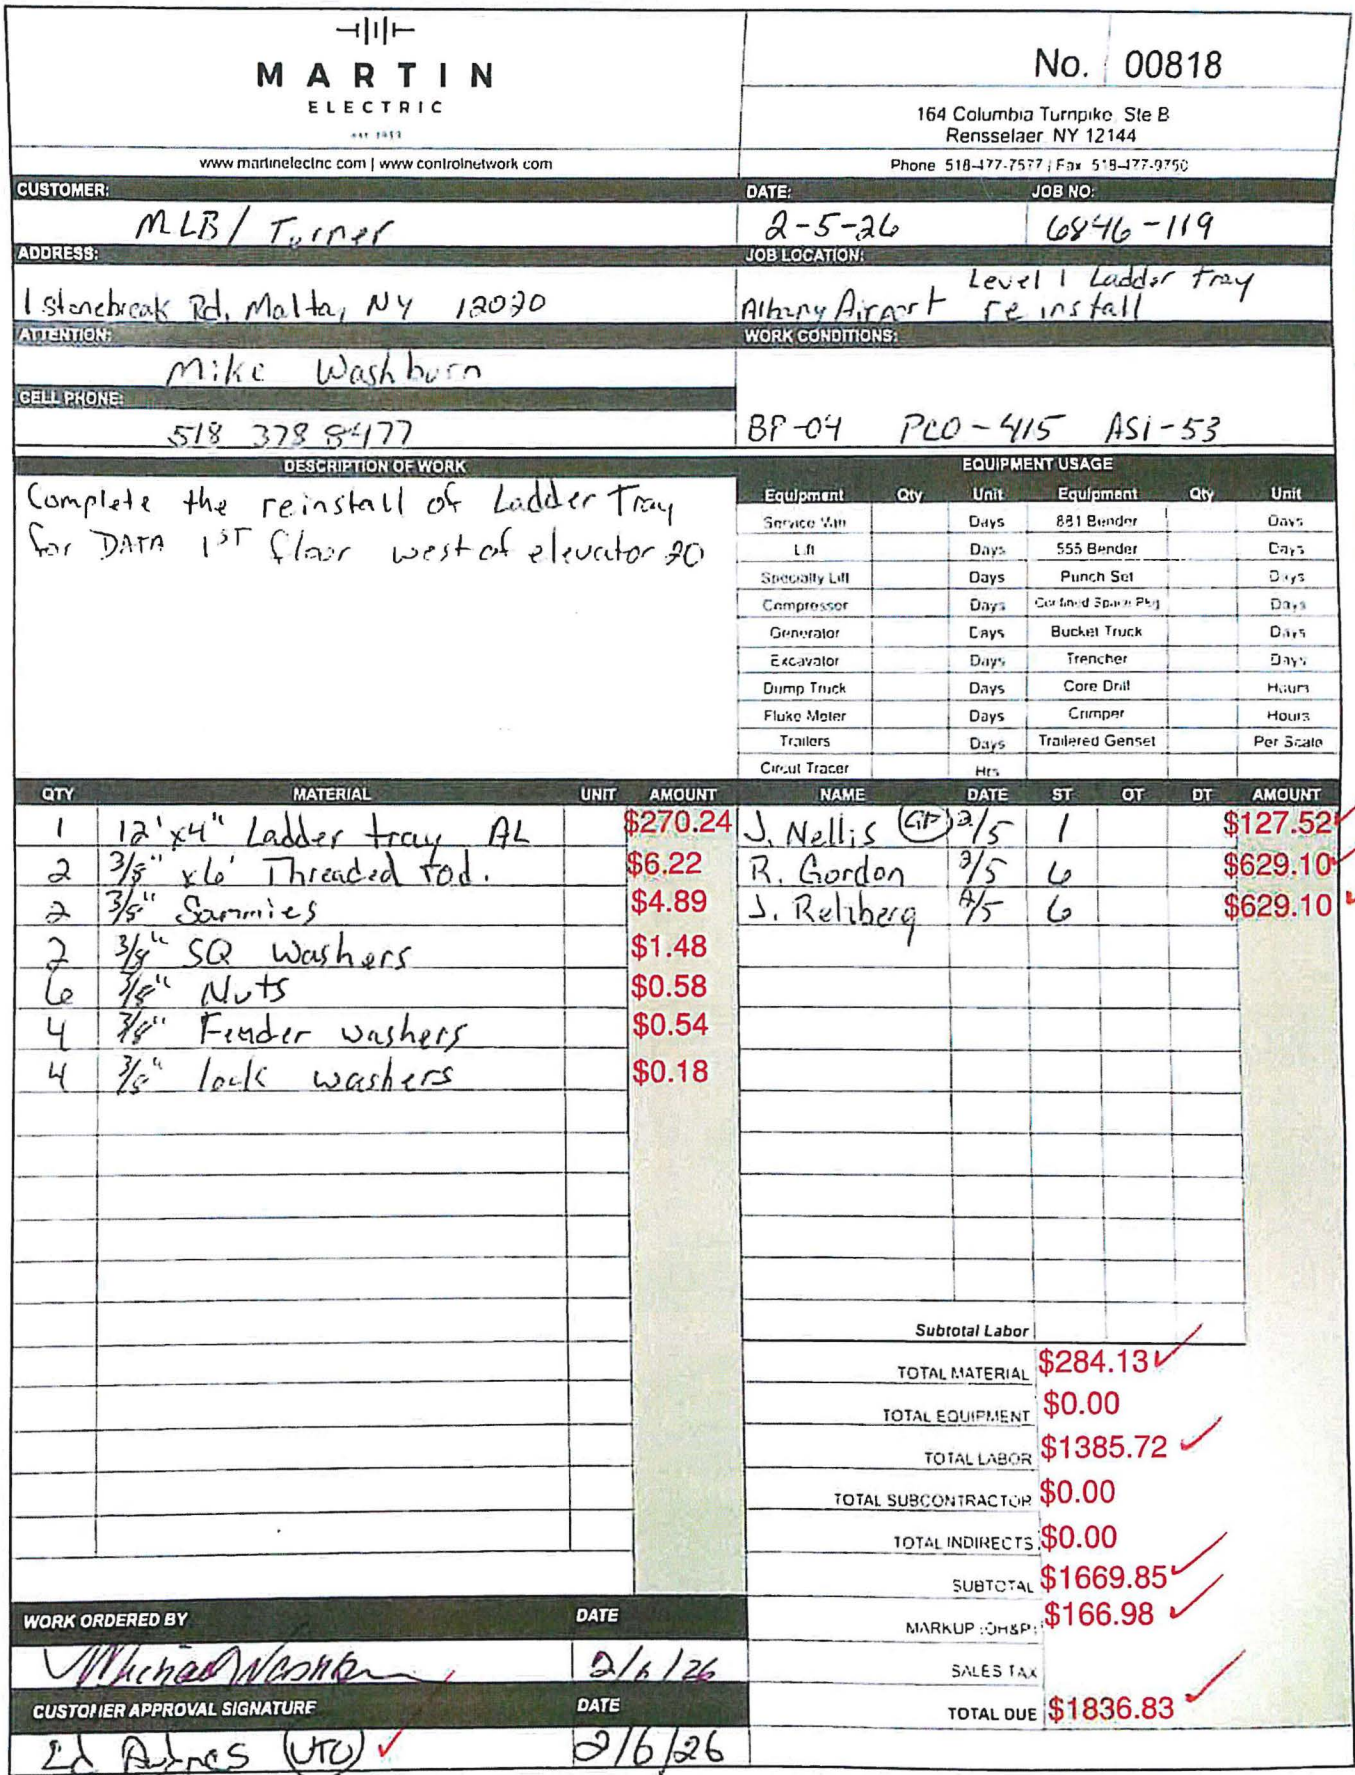 MARTIN
ELECTRIC
www.martinelectric com | www controlnetwork com
No. 00818
164 Columbia Turnpike, Ste B
Rensselaer NY 12144
Phone 518-477-7577 | Fax 518-477-9750
CUSTOMER:
MLB / Turner
DATE: JOB NO:
2-5-26 6846-119
ADDRESS:
1 stonebreak Rd, Malta, NY 12020
JOB LOCATION:
Level 1 Ladder tray
Albany Airport re install
ATTENTION:
Mike Washburn
WORK CONDITIONS:
CELL PHONE:
518 378 8477
BP-04 PCO-415 ASI-53
DESCRIPTION OF WORK
Complete the reinstall of Ladder Tray
for DATA 1ST floor west of elevator 20
EQUIPMENT USAGE
Equipment Qty Unit Equipment Qty Unit
Service Van Days 881 Bender Days
Lift Days 555 Bender Days
Specialty Lift Days Punch Set Days
Compressor Days Confined Space Pkg Days
Generator Days Bucket Truck Days
Excavator Days Trencher Days
Dump Truck Days Core Drill Hours
Fluke Meter Days Crimper Hours
Trailers Days Trailered Genset Per Scale
Circut Tracer Hrs
QTY MATERIAL UNIT AMOUNT
1 12'x4" Ladder tray AL $270.24
2 3/8" x6' Threaded rod. $6.22
2 3/8" Sammies $4.89
2 3/8" SQ Washers $1.48
6 3/8" Nuts $0.58
4 3/8" Fender washers $0.54
4 3/8" lock washers $0.18
NAME DATE ST OT DT AMOUNT
J. Nellis (GF) 2/5 1 $127.52
R. Gordon 2/5 6 $629.10
J. Relzberg 2/5 6 $629.10
Subtotal Labor
TOTAL MATERIAL $284.13
TOTAL EQUIPMENT $0.00
TOTAL LABOR $1385.72
TOTAL SUBCONTRACTOR $0.00
TOTAL INDIRECTS $0.00
SUBTOTAL $1669.85
MARKUP (OH&P) $166.98
SALES TAX
TOTAL DUE $1836.83
WORK ORDERED BY DATE
2/6/26
CUSTOMER APPROVAL SIGNATURE DATE
Ed (UTC) 2/6/26